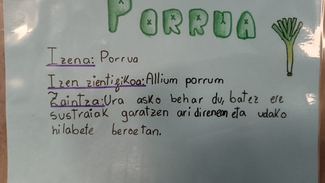 PORRUA
Izena: Porrua
Izen zientizikoa: Allium porrum
Zaintza: Ura asko behar du, batez ere
sustraiak garatzen ari direnean eta udako
hilabete beroetan.